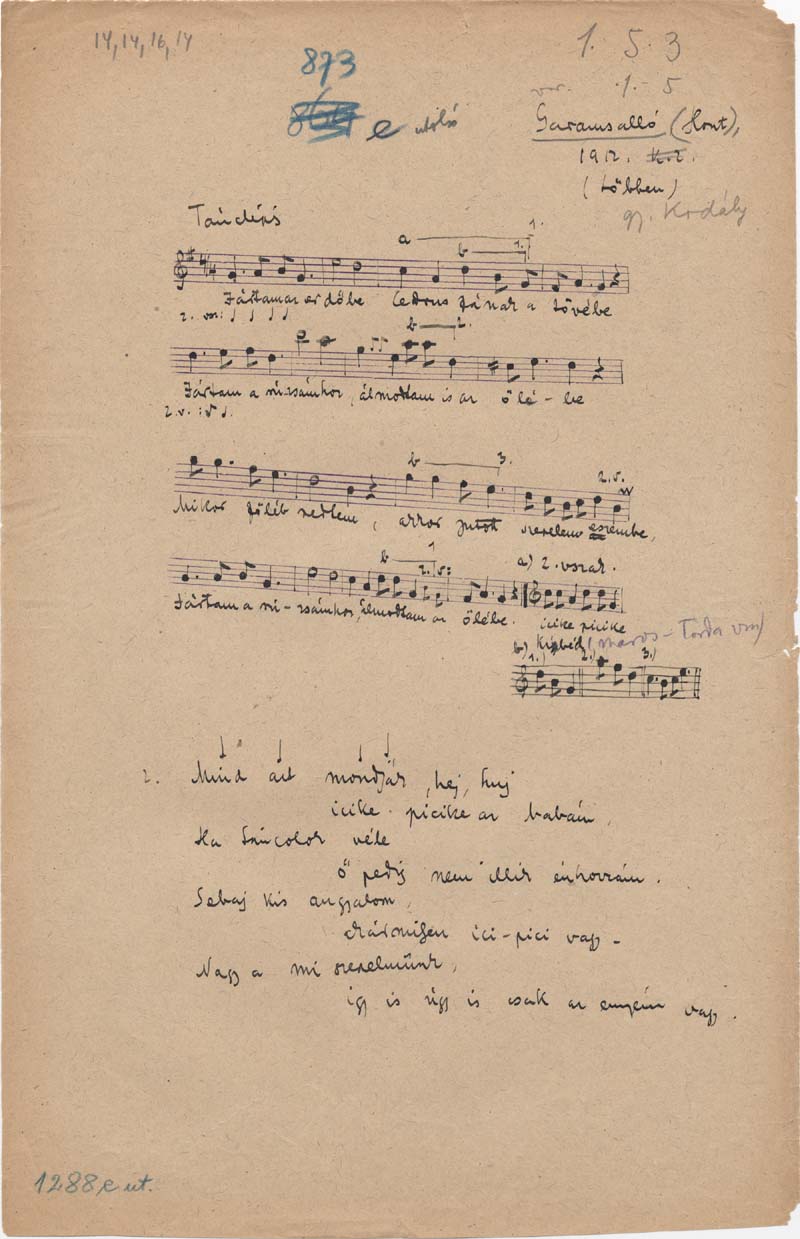 14, 14, 16, 14
1. 5. 3
873
var. 1.- 5
e utolsó
Garamsalló (Hont),
1912.
(többen)
gy. Kodály
Tánclépés
a 1.
b 1.
Jártam az erdőbe Cédrus fának a tövébe
2. vsz:
b 2.
Jártam a rózsámhoz, álmodtam is az ölé-be
2. v.:
b 3.
2. v.
Mikor fölébredtem, akkor jutott szerelem eszembe,
b 1
2. v:
a) 2. vszak.
Jártam a ró-zsámhoz, álmodtam az ölébe. icike picike
b) Kibéd (Maros-Torda vm)
1.) 2.) 3.)
2. Mind azt mondják, hej, huj
icike picike az babám,
Ha táncolok véle
Ő pedig nem illik énhozzám.
Sebaj kis angyalom,
Akármilyen ici-pici vagy -
Nagy a mi szerelmünk,
így is úgy is csak az enyém vagy.
1288 e ut.